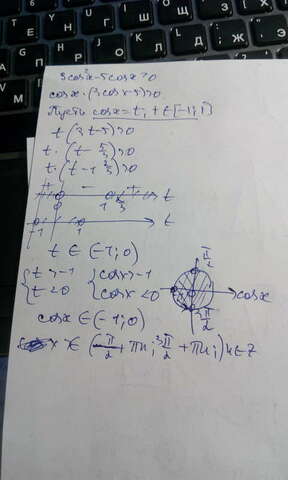 3cos²x-5cosx>0
cosx·(3cosx-5)>0
Пусть cosx=t, t∈[-1;1]
t(3t-5)>0
t·(t-5/3)>0
t·(t-1 2/3)>0
+ - +
0 1 1 2/3 t
-1 0 1 t
t ∈ (-1;0)
{t>-1 {cosx>-1
{t<0 {cosx<0
π/2
cosx
3π/2
cosx ∈ (-1;0)
x ∈ (π/2+πn; 3π/2+πn;) n∈Z